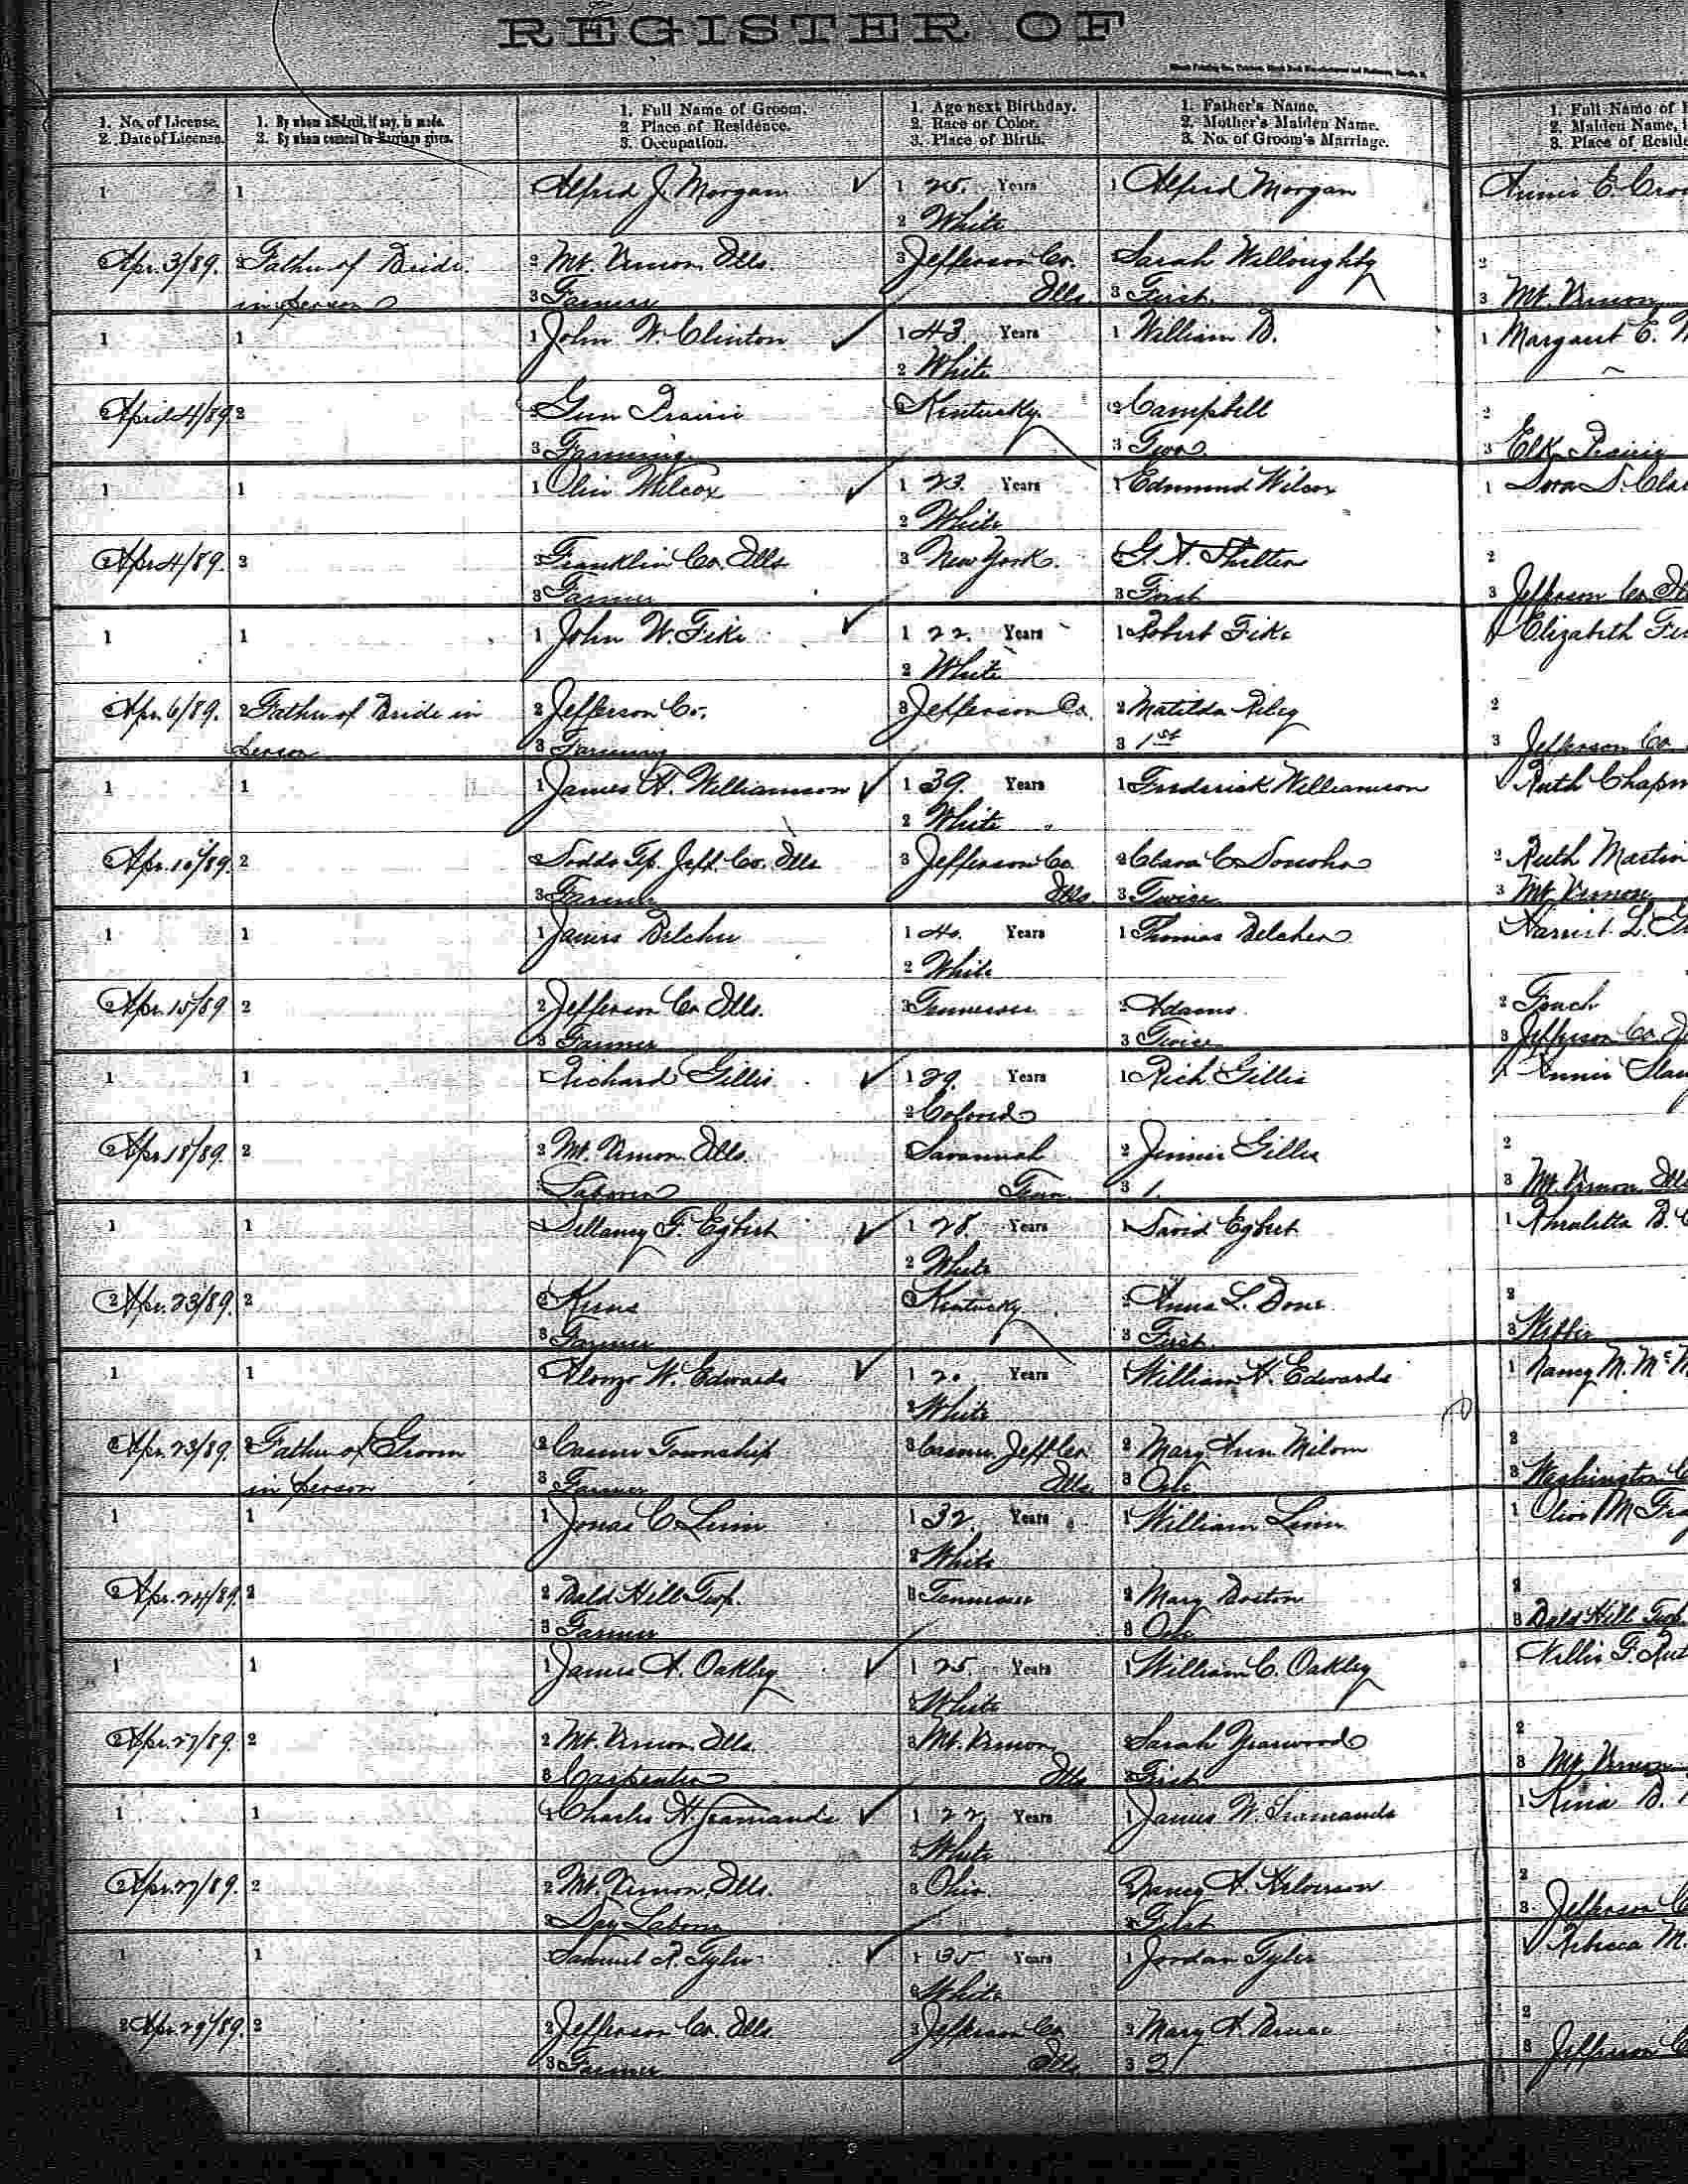 REGISTER OF
1. No. of License. 2. Date of License.
1. By whom affidavit, if any, is made. 2. By whom consent to Marriage given.
1. Full Name of Groom. 2. Place of Residence. 3. Occupation.
1. Age next Birthday. 2. Race or Color. 3. Place of Birth.
1. Father's Name. 2. Mother's Maiden Name. 3. No. of Groom's Marriage.
1. Full Name of 2. Maiden Name, 3. Place of Reside
1 1 Alfred J. Morgan 1 25 Years 1 Alfred Morgan Annie E. Croo
2 White
Apr. 3/89. 2 Father of Bride 2 Mt. Vernon Ills. 3 Jefferson Co. Sarah Willoughby 2
in person 3 Farmer Ills 3 First 3 Mt. Vernon
1 1 1 John W. Clinton 1 43 Years 1 William B. 1 Margaret E.
2 White
2 April 4/89. 2 2 Gun Prairie 3 Kentucky 2 Campbell 2
3 Farming 3 Two 3 Elk Prairie
1 1 1 Olin Wilcox 1 23 Years 1 Edmund Wilcox 1 Dora D. Clar
2 White
2 Apr 4/89. 2 2 Franklin Co. Ills 3 New York 2
3 Farmer 3 First 3 Jefferson Co.
1 1 1 John W. Fike 1 22 Years 1 Robert Fike Elizabeth
2 White
Apr. 6/89. 2 Father of Bride in 2 Jefferson Co. 3 Jefferson Co. 2 Matilda Riley 2
person 3 Farming 3 1st 3 Jefferson Co
1 1 1 James H. Williamson 1 39 Years 1 Frederick Williamson Ruth Chapm
2 White
2 Apr. 10/89. 2 2 Dodds Tp. Jeff. Co. Ills 3 Jefferson Co 2 Clara C. 2 Ruth Martin
3 Farmer Ills. 3 Twice 3 Mt Vernon
1 1 1 James Belcher 1 40 Years 1 Thomas Belcher Harriet L.
2 White
2 Apr. 15/89. 2 2 Jefferson Co Ills. 3 Tennessee 2 Adams 2
3 Farmer 3 Twice 3 Jefferson Co.
1 1 1 Richard Gillis 1 29 Years 1 Rich Gillis Annie
2 Colored
2 Apr 18/89. 2 2 Mt. Vernon Ills. Savannah 2 Jinnie Gillis 2
3 Laborer Tenn 3 1. 3 Mt. Vernon Ills
1 1 1 Dellaney F. Egbert 1 28 Years 1 David Egbert 1
2 White
2 Apr. 23/89. 2 2 Kirns 3 Kentucky 2 Anna L. Done 2
3 Farmer 3 First 3
1 1 Alonzo W. Edwards 1 20 Years William H. Edwards 1 Nancy M. Mc
2 White
2 Apr. 23/89. 2 Father of Groom 2 Casner Township 3 Casner Jeff Co 2 Mary Ann Milom 2
in person 3 Farmer Ills 3 One 3 Washington C
1 1 1 Jonas C Linn 1 32 Years 1 William Linn 1 Olive M
2 White
2 Apr. 24/89. 2 2 Bald Hill Twp. 3 Tennessee 2 Mary Boston 2
3 Farmer 3 One 3 Bald Hill Twp.
1 1 1 James A. Oakley 1 25 Years 1 William C. Oakley Nellie F.
2 White
2 Apr. 27/89. 2 2 Mt. Vernon Ills. 3 Mt. Vernon 2 Sarah Yearwood 2
3 Carpenter Ills 3 First 3 Mt. Vernon
1 1 1 Charles H. 1 22 Years 1 James W. 1
2 White
2 Apr. 27/89. 2 2 Mt. Vernon, Ills. 3 Ohio 2 Nancy A. 2
3 Day Laborer 3 First 3 Jefferson C
1 1 Samuel R. Tyler 1 35 Years 1 Jordan Tyler 1 Rebecca M.
2 White
2 Apr. 29/89. 2 2 Jefferson Co. Ills. 3 Jefferson Co 2 Mary A. Bruce 2
3 Farmer Ills 3 2 3 Jefferson C